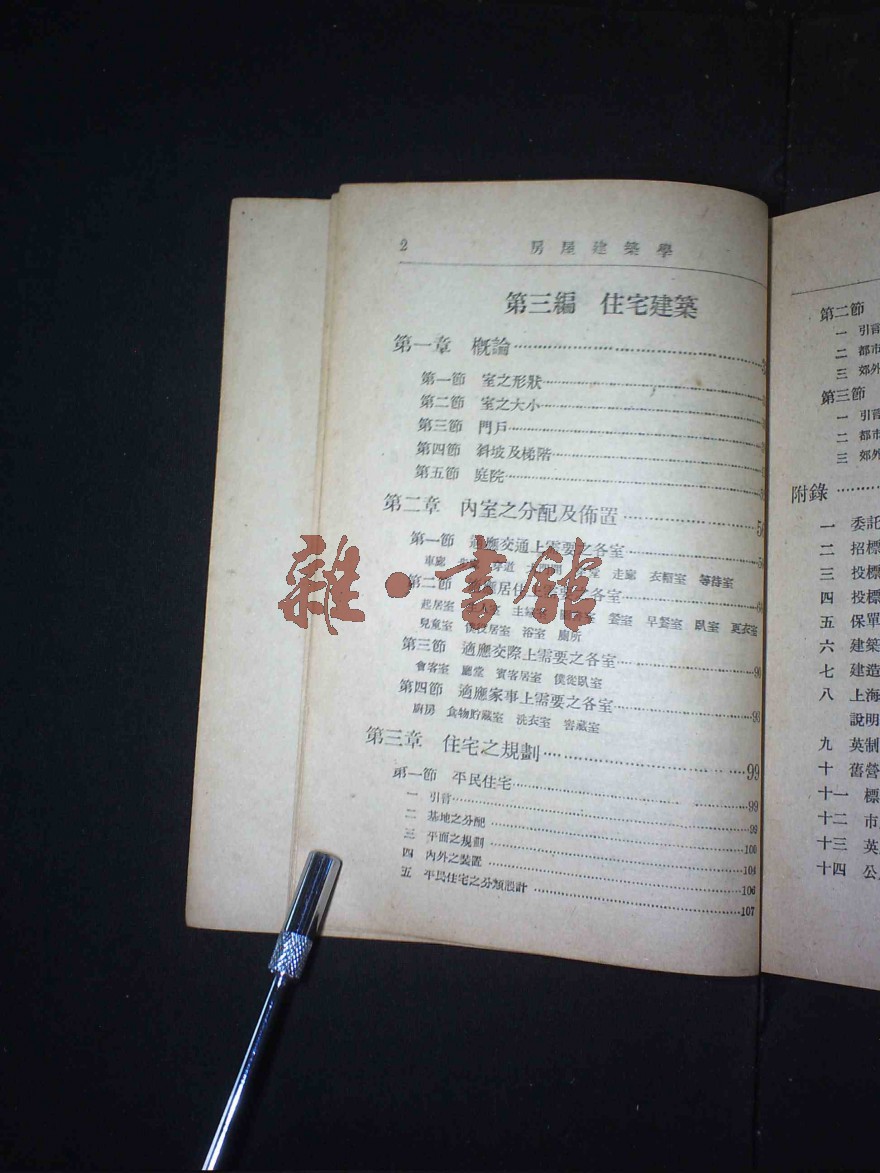 2
房屋建築學
第三編 住宅建築
第一章 概論
第一節 室之形狀
第二節 室之大小
第三節 門戶
第四節 斜坡及梯階
第五節 庭院
第二章 內室之分配及佈置
第一節 適應交通上需要之各室
車廊 走廊 衣帽室 等待室
第二節 應居住上需要之各室
起居室 餐室 早餐室 臥室 更衣室
兒童室 僕役居室 浴室 廁所
第三節 適應交際上需要之各室 90
會客室 廳堂 賓客居室 僕從臥室
第四節 適應家事上需要之各室 93
廚房 食物貯藏室 洗衣室 窖藏室
第三章 住宅之規劃 99
第一節 平民住宅 99
一 引言 99
二 基地之分配 99
三 平面之規劃 100
四 內外之裝置 104
五 平民住宅之分類設計 106
107
雜·書館
第二節
一 引言
二 都市
三 郊外
第三節
一 引言
二 都市
三 郊外
附錄
一 委託
二 招標
三 投標
四 投標
五 保單
六 建築
七 建造
八 上海
說明
九 英制
十 舊營
十一 標
十二 市
十三 英
十四 公